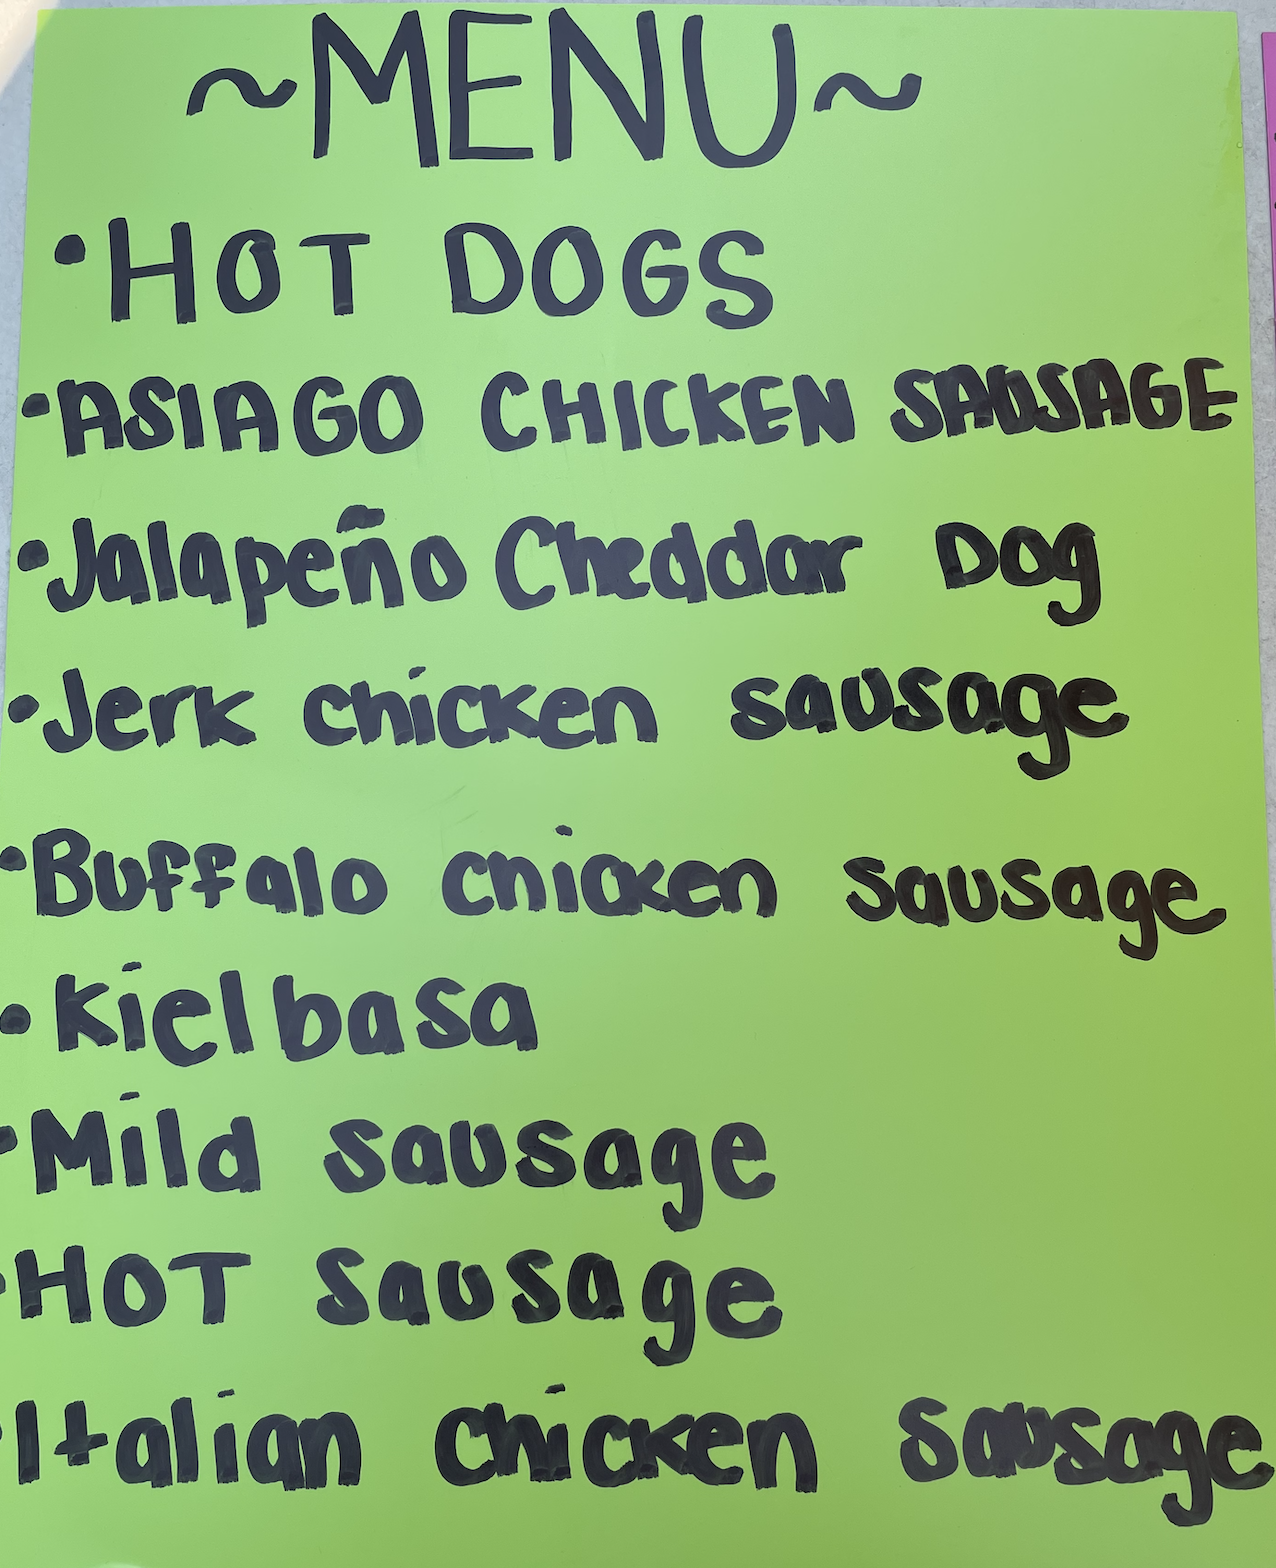 ~MENU~
•HOT DOGS
•ASIAGO CHICKEN SAUSAGE
•Jalapeño Cheddar Dog
•Jerk chicken sausage
•Buffalo chicken sausage
•Kielbasa
•Mild sausage
•HOT Sausage
•Italian chicken sausage